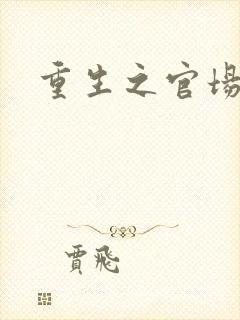 重生之官場
賈飛